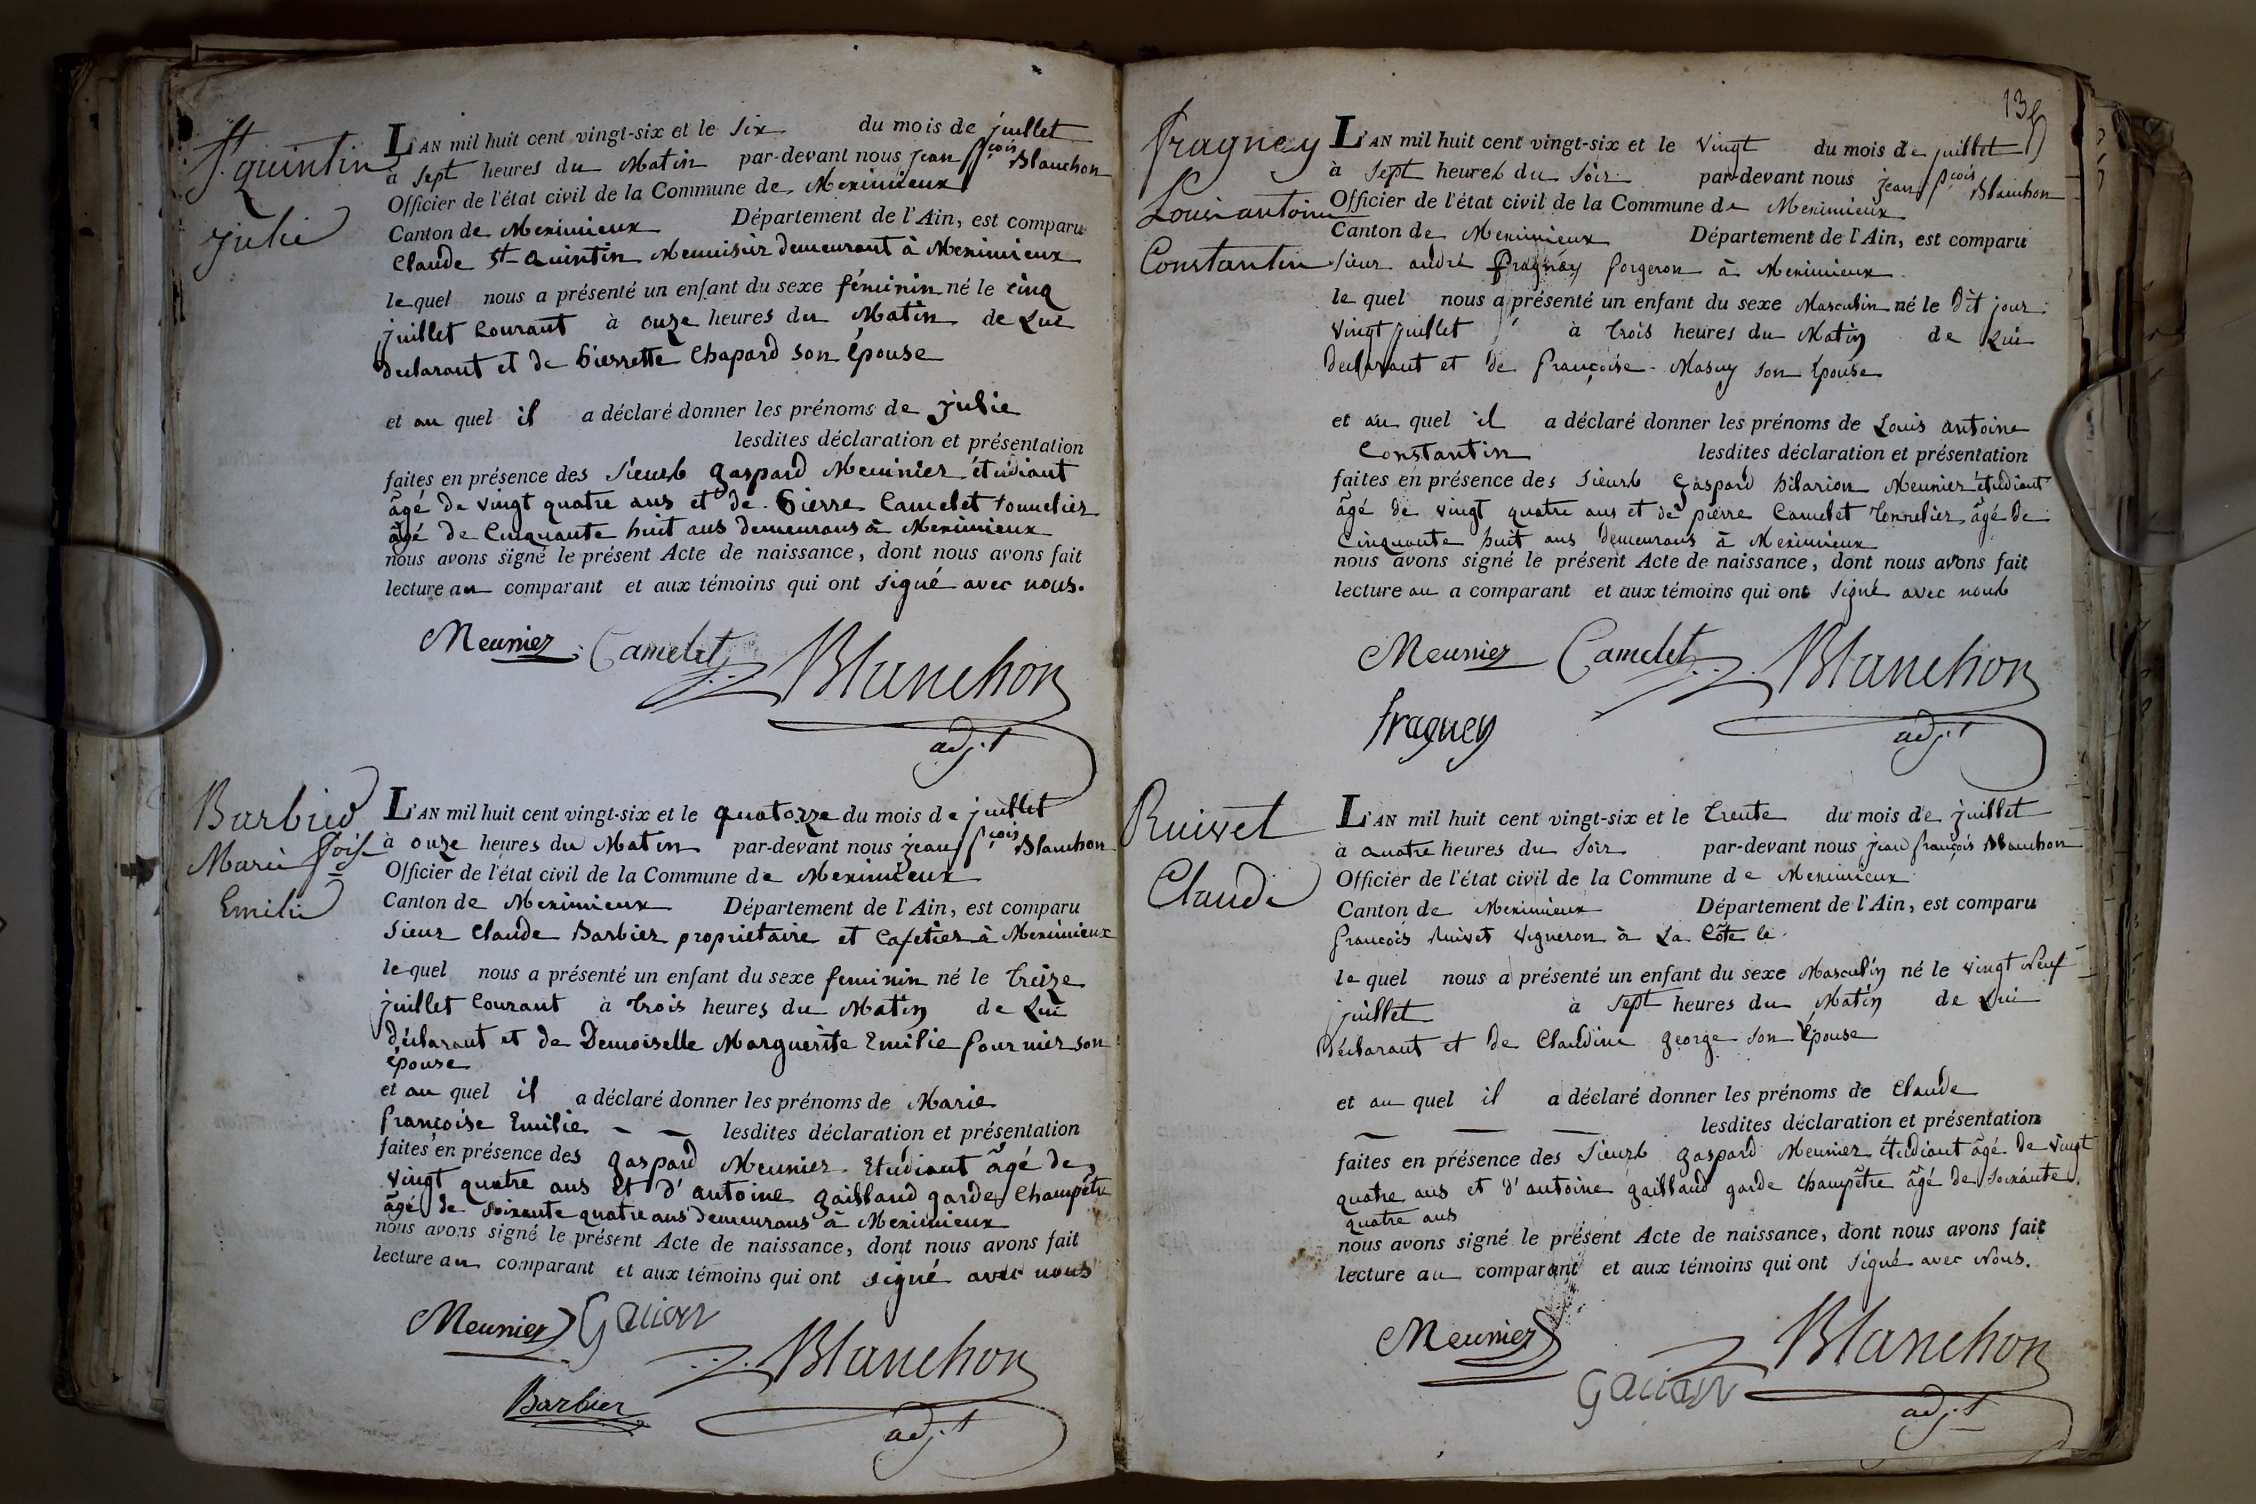 St. quintin
julie
L'AN mil huit cent vingt-six et le six du mois de juillet
à sept heures du Matin par-devant nous jean fçois Blanchon
Officier de l'état civil de la Commune de Meximieux
Canton de Meximieux Département de l'Ain, est comparu
Claude St quintin Menuisier demeurant à Meximieux
lequel nous a présenté un enfant du sexe féminin né le cinq
juillet Courant à onze heures du Matin de Lui
declarant et de Pierrette Chapard son épouse
et au quel il a déclaré donner les prénoms de julie
lesdites déclaration et présentation
faites en présence des sieurs gaspard Meunier étudiant
âgé de vingt quatre ans et de Pierre Camelet tonnelier
âgé de Cinquante huit ans demeurans à Meximieux
nous avons signé le présent Acte de naissance, dont nous avons fait
lecture au comparant et aux témoins qui ont signé avec nous.
Meunier Camelet Blanchon
adj.t
Barbier
Marie fçoise
Emilie
L'AN mil huit cent vingt-six et le quatorze du mois de juillet
à onze heures du Matin par-devant nous jean fçois Blanchon
Officier de l'état civil de la Commune de Meximieux
Canton de Meximieux Département de l'Ain, est comparu
sieur Claude Barbier propriétaire et Cafetier à Meximieux
lequel nous a présenté un enfant du sexe feminin né le treize
juillet Courant à trois heures du Matin de Lui
déclarant et de Demoiselle Marguerite Emilie fournier son
épouse
et au quel il a déclaré donner les prénoms de Marie
françoise Emilie lesdites déclaration et présentation
faites en présence des gaspard Meunier Etudiant âgé de
vingt quatre ans et d'antoine gailland garde Champêtre
âgé de soixante quatre ans demeurans à Meximieux
nous avons signé le présent Acte de naissance, dont nous avons fait
lecture au comparant et aux témoins qui ont signé avec nous
Meunier
Blanchon
Barbier
adj.t
132
fragney
Louis antoine
Constantin
L'AN mil huit cent vingt-six et le vingt du mois de juillet
à sept heures du soir par-devant nous jean fçois Blanchon
Officier de l'état civil de la Commune de Meximieux
Canton de Meximieux Département de l'Ain, est comparu
sieur andré fragney forgeron à Meximieux
le quel nous a présenté un enfant du sexe Masculin né le dit jour
vingt juillet à trois heures du Matin de Lui
declarant et de françoise Masuy son épouse
et au quel il a déclaré donner les prénoms de Louis antoine
Constantin lesdites déclaration et présentation
faites en présence des sieurs gaspard hilarion Meunier étudiant
âgé de vingt quatre ans et de pierre Camelet tonnelier âgé de
Cinquante huit ans demeurans à Meximieux
nous avons signé le présent Acte de naissance, dont nous avons fait
lecture au a comparant et aux témoins qui ont signé avec nous
Meunier Camelet Blanchon
fragney
adj.t
Ruivet
Claude
L'AN mil huit cent vingt-six et le trente du mois de juillet
à quatre heures du soir par-devant nous jean françois Blanchon
Officier de l'état civil de la Commune de Meximieux
Canton de Meximieux Département de l'Ain, est comparu
françois Ruivet vigneron à La Côte le
le quel nous a présenté un enfant du sexe Masculin né le vingt neuf
juillet à sept heures du Matin de Lui
déclarant et de Claudine george son épouse
et au quel il a déclaré donner les prénoms de Claude
lesdites déclaration et présentation
faites en présence des sieurs gaspard Meunier étudiant âgé de vingt
quatre ans et d'antoine gailland garde Champêtre âgé de soixante
quatre ans
nous avons signé le présent Acte de naissance, dont nous avons fait
lecture au comparant et aux témoins qui ont signé avec Nous.
Meunier Blanchon
adj.t